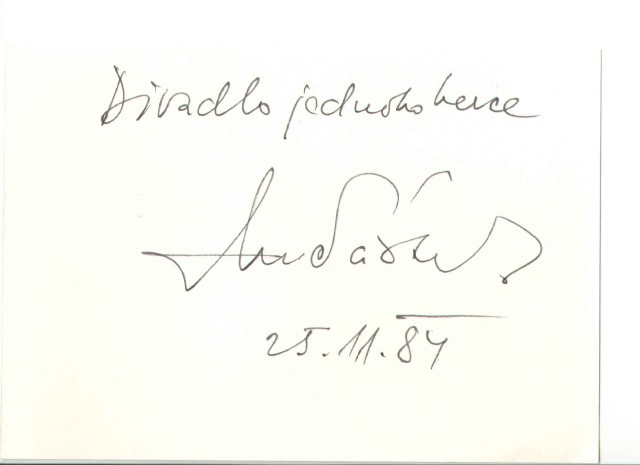 Divadlo jednoho herce
25.11.84